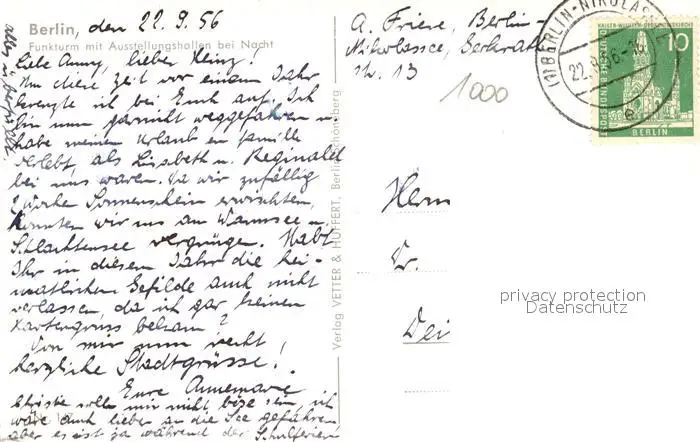 Berlin, den 22.9.56
Funkturm mit Ausstellungshallen bei Nacht
Liebe Anny, lieber Heinz!
Um diese Zeit vor einem Jahr
kreuzte ich bei Euch auf. Ich
bin nun garnicht weggefahren u.
habe meinen Urlaub en famille
verlebt, als Lisbeth u. Reginald
bei uns waren. Da wir zufällig
2 Woche Sonnenschein erwischten,
konnten wir uns am Wannsee u.
Schlachtensee vergnügen. Habt
Ihr in diesem Jahr die hei-
matlichen Gefilde auch nicht
verlassen, da ich gar keinen
Kartengruss bekam?
Von mir nun recht
herzliche Stadtgrüsse!
Eure Annemarie
Christe sollen mir nicht böse sein, ich
wäre auch lieber an die See gefahren
aber es ist ja während der Schulferien
alles
Verlag VETTER & HUFFERT, Berlin-Schöneberg
A. Friese, Berlin-
Nikolassee,
str. 13
1000
BERLIN-NIKOLASSEE
22.9.56
KAISER-WILHELM-GEDÄCHTNISKIRCHE
10
DEUTSCHE BUNDESPOST
BERLIN
Herrn
Dr.
Dei
privacy protection
Datenschutz